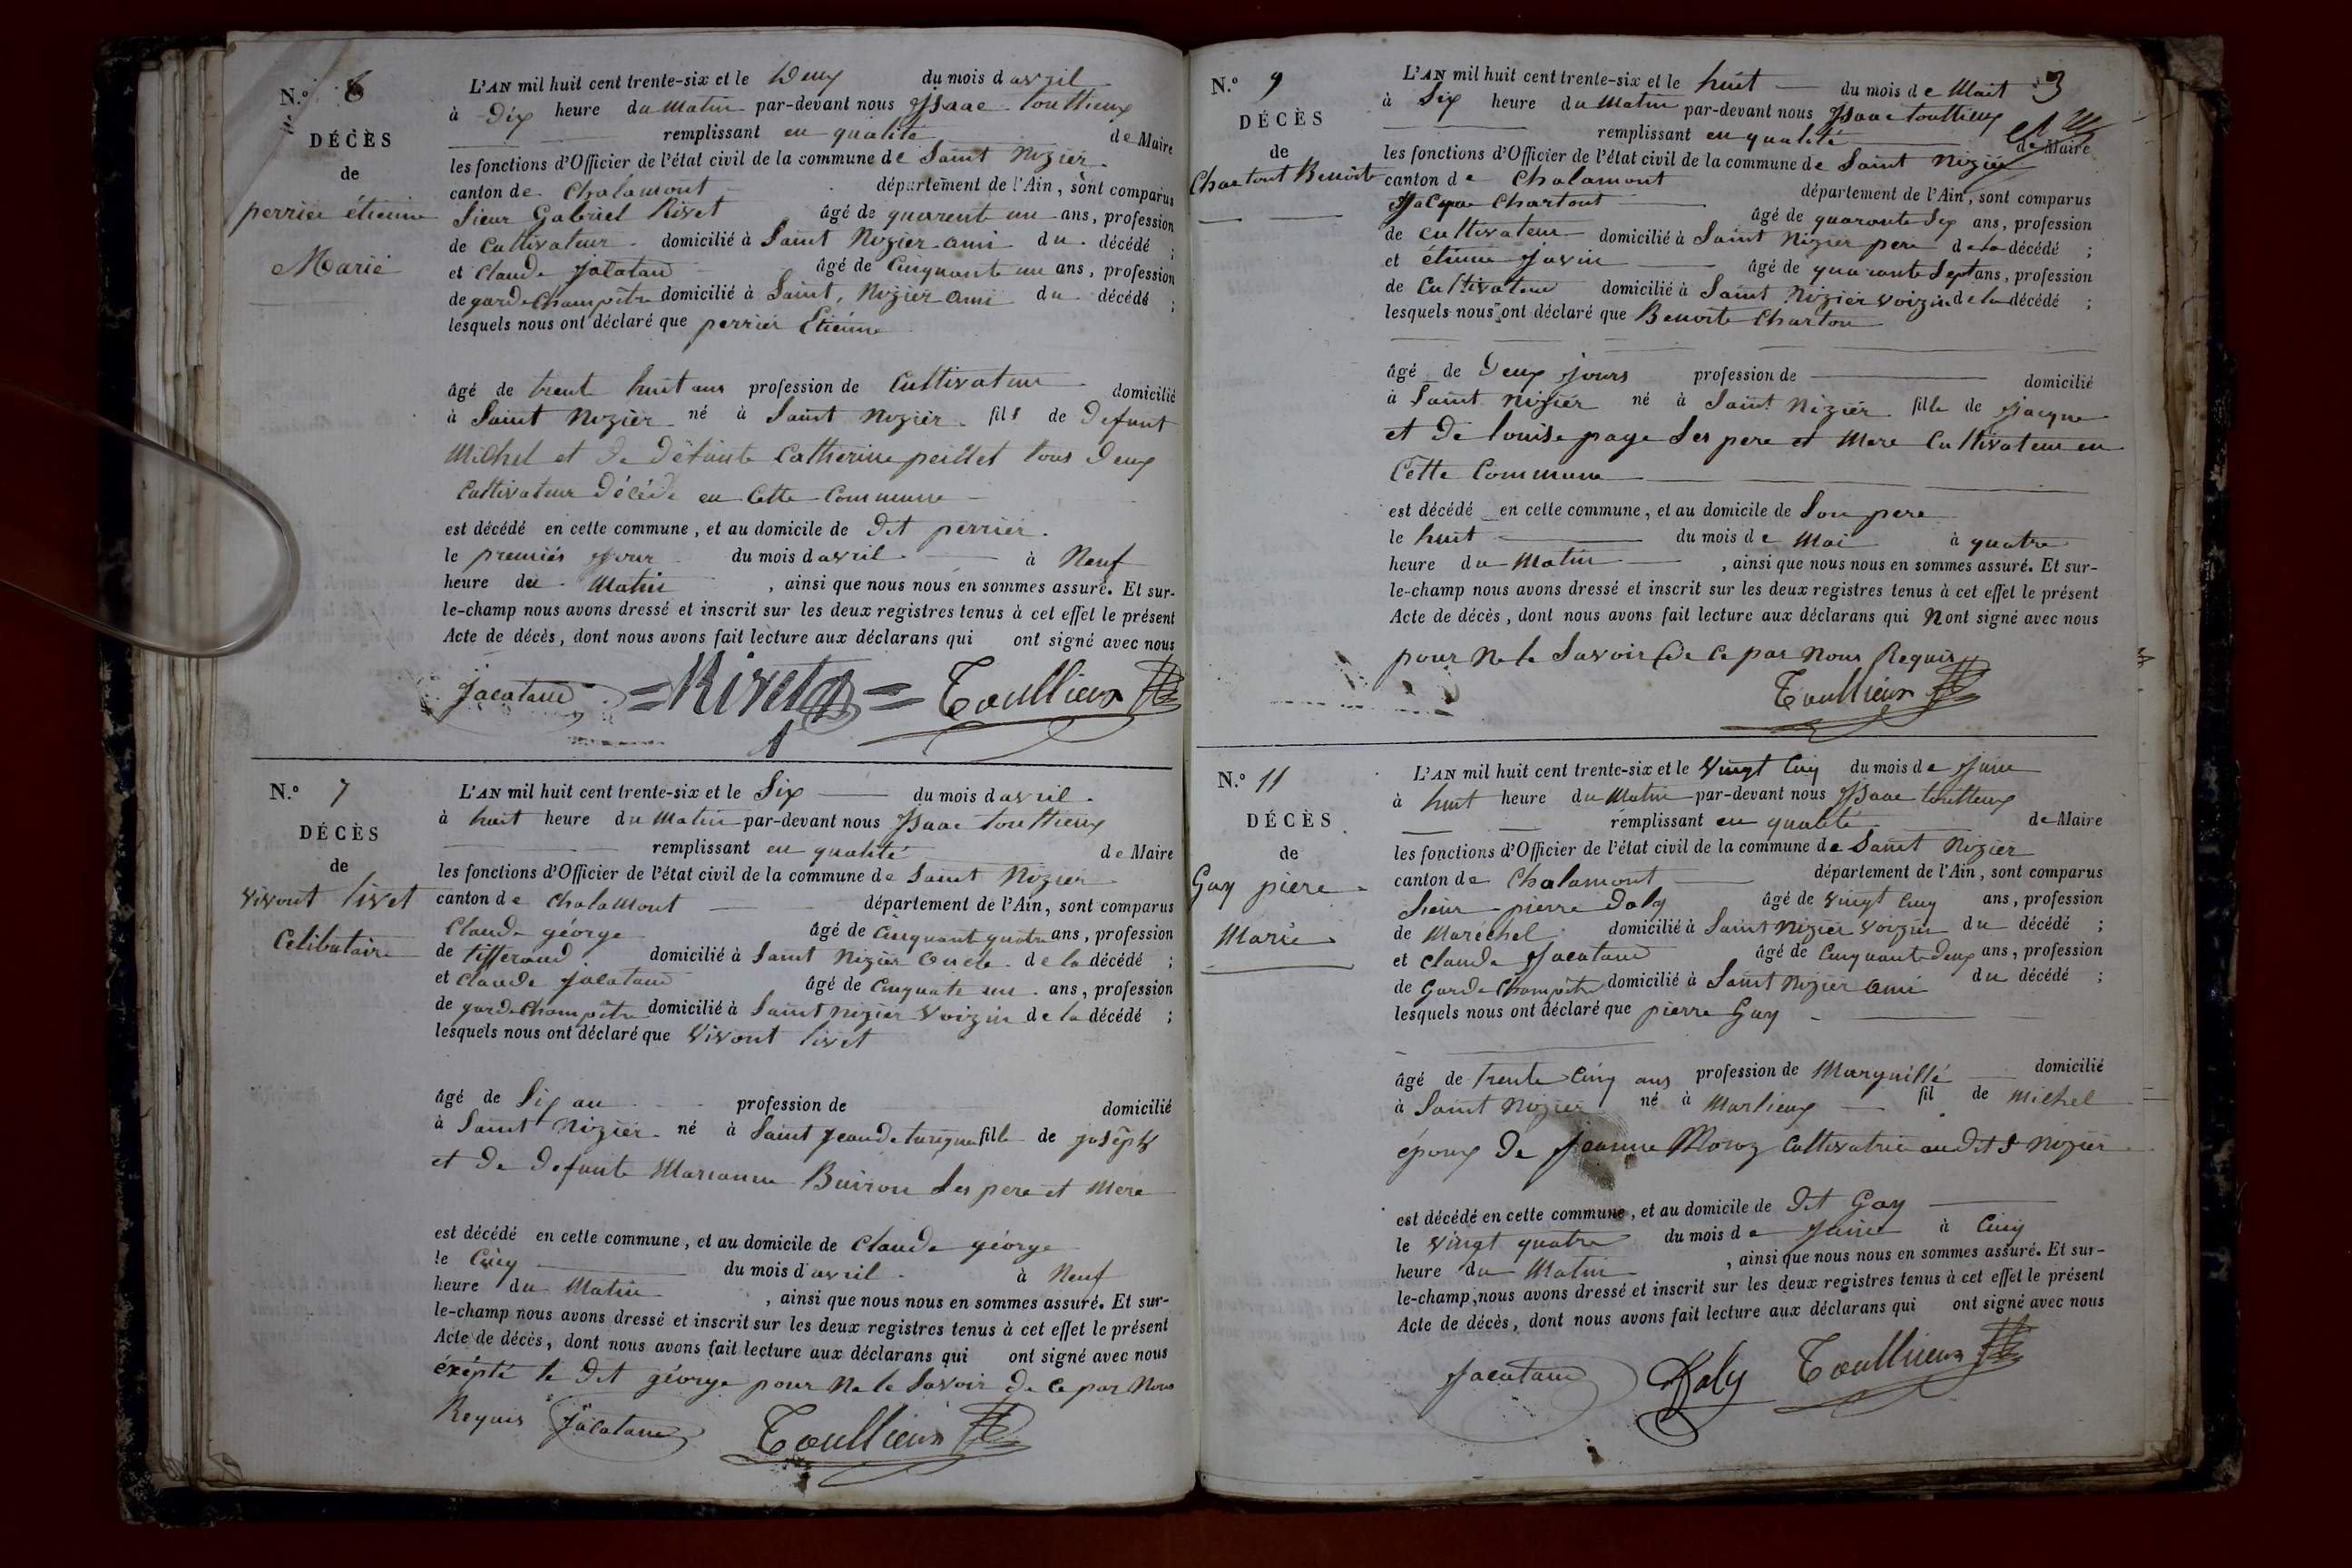 N.º 6
DÉCÈS
de
perrier étienne
Marié
L'AN mil huit cent trente-six et le Deux du mois d avril
à Dix heure du Matin par-devant nous Isaac touttieux
remplissant en qualité de Maire
les fonctions d'Officier de l'état civil de la commune de Saint Nizier
canton de Chalamont département de l'Ain, sont comparus
Sieur Gabriel Rivet âgé de quarent un ans, profession
de Cultivateur domicilié à Saint Nizier ami du décédé ;
et Claude Jacatau âgé de Cinquante un ans, profession
de garde Champètre domicilié à Saint Nizier ami du décédé ;
lesquels nous ont déclaré que perrier Etienne
âgé de trent huit ans profession de Cultivateur domicilié
à Saint Nizier né à Saint Nizier fils de Defunt
Michel et De Défunte Catherine peillet tous Deux
Cultivateur Décédé en Cette Commune
est décédé en cette commune, et au domicile de Dit perrier
le premiés Jour du mois d avril à Neuf
heure du Matin , ainsi que nous nous en sommes assuré. Et sur-
le-champ nous avons dressé et inscrit sur les deux registres tenus à cet effet le présent
Acte de décès, dont nous avons fait lecture aux déclarans qui ont signé avec nous
Jacataud =Rivet= Toullieux
N.º 7
DÉCÈS
de
vivont livet
Celibataire
L'AN mil huit cent trente-six et le Six du mois d avril
à huit heure du Matin par-devant nous Isaac touttieux
remplissant en qualité de Maire
les fonctions d'Officier de l'état civil de la commune de Saint Nizier
canton de Chalamont département de l'Ain, sont comparus
Claude géorge âgé de Cinquant quatre ans, profession
de tisserand domicilié à Saint Nizier oncle de la décédé ;
et Claude Jacataud âgé de Cinquate un ans, profession
de garde Champètre domicilié à Saint Nizier Voizin de la décédé ;
lesquels nous ont déclaré que Vivont livet
âgé de Six an profession de domicilié
à Saint Nizier né à Saint Jean de turigneu fille de Joseph
et De Defunte Marianne Buiron Ses pere et Mere
est décédé en cette commune, et au domicile de Claude géorge
le Cinq du mois d'avril à Neuf
heure du Matin , ainsi que nous nous en sommes assuré. Et sur-
le-champ nous avons dressé et inscrit sur les deux registres tenus à cet effet le présent
Acte de décès, dont nous avons fait lecture aux déclarans qui ont signé avec nous
éxépté le Dit géorge pour Ne le Savoir De Ce par Nous
Requis Jacataud Toullieux
3
N.º 9
DÉCÈS
de
Chartont Benoite
L'AN mil huit cent trente-six et le huit du mois de Mait
à Six heure du Matin par-devant nous Isaac touttieux
remplissant en qualité de Maire
les fonctions d'Officier de l'état civil de la commune de Saint Nizier
canton de Chalamont département de l'Ain, sont comparus
Jacque Chartont âgé de quarante Six ans, profession
de Cultivateur domicilié à Saint Nizier pere de la décédé ;
et étienne Javin âgé de quarante Sept ans, profession
de Cultivateur domicilié à Saint Nizier Voizin de la décédé ;
lesquels nous ont déclaré que Benoite Charton
âgé de Deux jours profession de domicilié
à Saint Nizier né à Saint Nizier fille de Jacque
et De louise page Ses pere et Mere Cultivateur en
Cette Commune
est décédé en cette commune, et au domicile de Son pere
le huit du mois de Mai à quatre
heure du Matin , ainsi que nous nous en sommes assuré. Et sur-
le-champ nous avons dressé et inscrit sur les deux registres tenus à cet effet le présent
Acte de décès, dont nous avons fait lecture aux déclarans qui Nont signé avec nous
pour Ne le Savoir De Ce par Nous Requis
Toullieux
N.º 11
DÉCÈS
de
Gay piere
Marié
L'AN mil huit cent trente-six et le Vingt Cinq du mois de Juin
à huit heure du Matin par-devant nous Isaac toutteux
remplissant en qualité de Maire
les fonctions d'Officier de l'état civil de la commune de Saint Nizier
canton de Chalamont département de l'Ain, sont comparus
Sieur pierre Doly âgé de Vingt Cinq ans, profession
de Maréchel domicilié à Saint Nizier Voizin du décédé ;
et Claude Jacataud âgé de Cinquante Deux ans, profession
de Garde Champètre domicilié à Saint Nizier ami du décédé ;
lesquels nous ont déclaré que pierre Gay
âgé de trente Cinq ans profession de Marguillé domicilié
à Saint Nizier né à Marlieux fil de Michel
époux De Jeanne Moroz Cultivatrice audit S Nizier
est décédé en cette commune, et au domicile de Dit Gay
le Vingt quatre du mois de Juin à Cinq
heure du Matin , ainsi que nous nous en sommes assuré. Et sur-
le-champ nous avons dressé et inscrit sur les deux registres tenus à cet effet le présent
Acte de décès, dont nous avons fait lecture aux déclarans qui ont signé avec nous
Jacataud Doly Toullieux